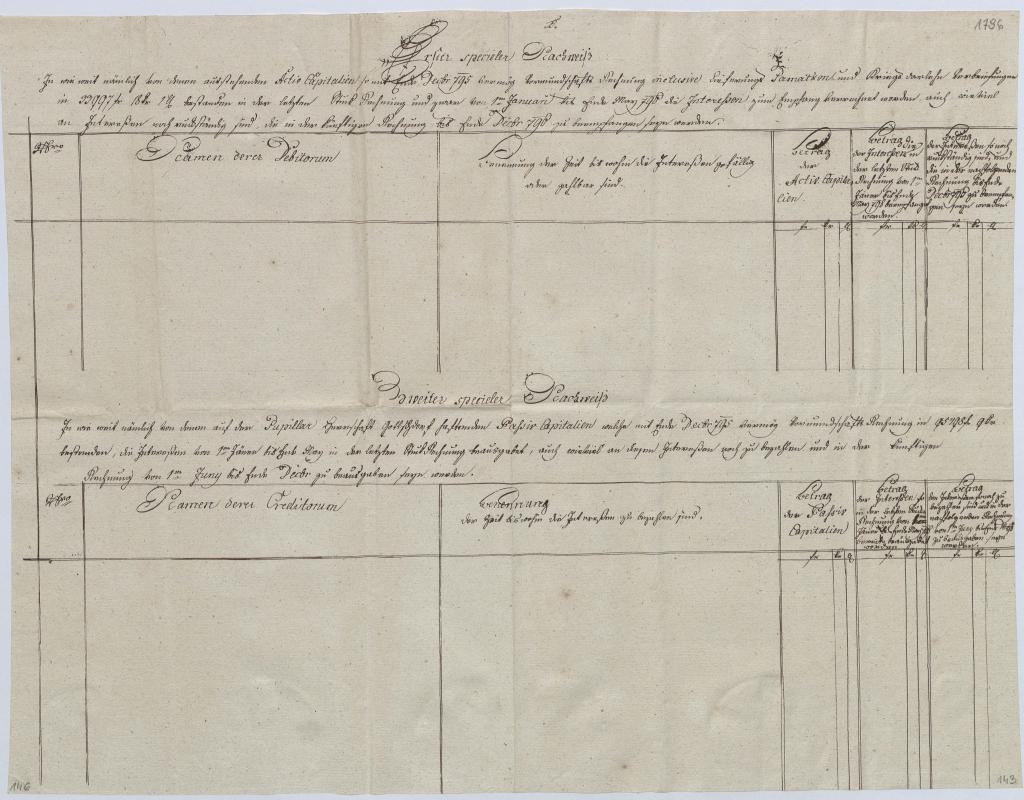 1796
Erster specieler Nachweiß
In wie weit nämlich von denen ausstehenden Activ Capitalien so mit Ende Decbr 795 vermög Vormundschafts Rechnung inclusive und Kriegs darlehe
in 33997 fr bestanden in der letzten Stuk Rechnung und zwar von 1ten Januari bis Ende May 796 die Interessen zum Empfang verrechnet worden, auch wieviel
an Interessen noch rückständig sind, die in der künftigen Rechnung bis Ende Decbr 796 zu beempfangen seyn werden.
Namen derer Debitorum
Benennung der Zeit bis wohin die Interessen gefällig
oder zahlbar sind.
Betrag
der
Activ Capita-
lien.
Betrag die
der Interessen in
der letzten Stuk
Rechnung von 1ten
Jäner bis Ende
May 796 beempfangen
worden
Betrag
der Interessen so noch
ausständig sind, und
die in der nachfolgenden
Rechnung bis Ende
Decbr 796 zu beempfan-
gen seyn werden
fr kr d fr kr d fr kr d
Zweiter specieler Nachweiß
In wie weit nämlich von denen auf der Pupillar Herrschaft haftenden Passiv Capitalien welche mit Ende Decbr 795 vermög Vormundschafts Rechnung in
bestanden, die Interessen von 1ten Jäner bis Ende May in der letzten Stuk Rechnung beausgabet, auch wieviel an denen Interessen noch zu bezahlen und in der künftigen
Rechnung von 1ten Juny bis Ende Decbr zu beausgaben seyn werden.
Namen derer Creditorum
Benennung
der Zeit bis wohin die Interessen zu bezahlen sind.
Betrag
der Passiv
Capitalien
Betrag
der Interessen so
in der letzten Stuk
Rechnung von 1ten
Jäner bis Ende May
beausgabet
worden
Betrag
der Interessen so noch zu
bezahlen sind und in der
nachfolgenden Rechnung
von 1ten Juny bis Ende
zu beausgaben seyn
werden.
fr kr d fr kr d fr kr d
146
143